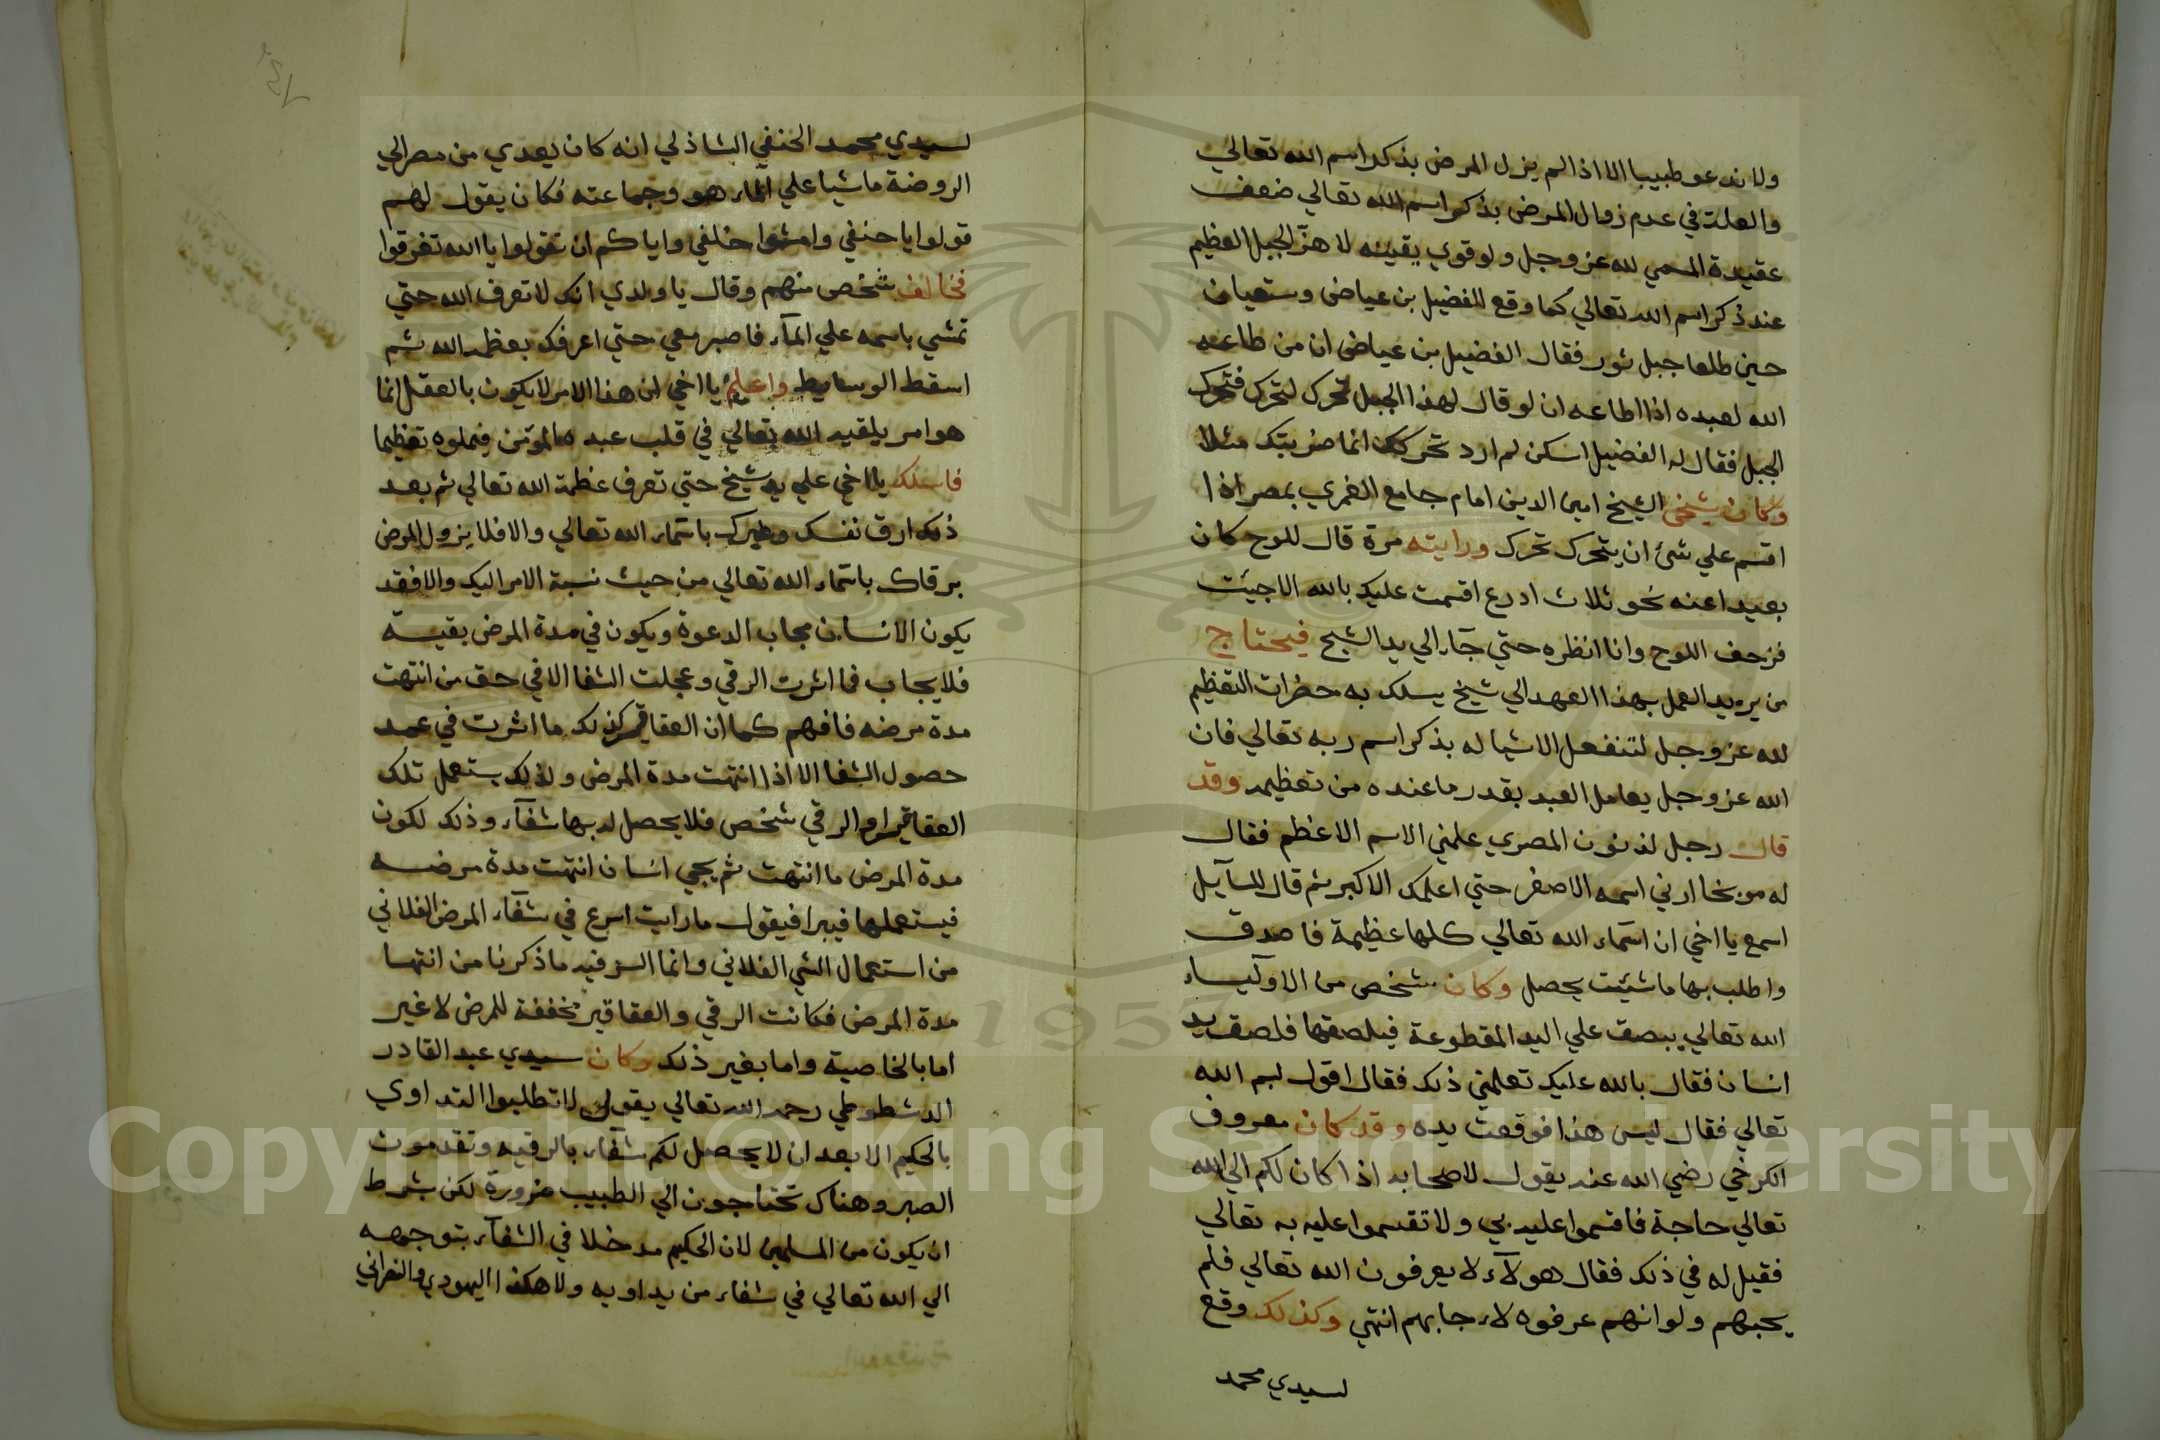 ولا ندعو طبيبا الا اذا لم يزل المرض بذكر اسم الله تعالي
والعلة في عدم زوال المرض بذكر اسم الله تعالي ضعف
عقيدة المسمي لله عز وجل ولو قوي يقينه لا هتز الجبل العظيم
عند ذكر اسم الله تعالي كما وقع للفضيل بن عياض وسفيان
حين طلعا جبل ثور فقال الفضيل بن عياض ان من طاعة
الله لعبده اذا اطاعه ان لو قال لهذا الجبل تحرك لتحرك فتحرك
الجبل فقال له الفضيل اسكن لم ارد تحركك انما ضربتك مثلا
وكان شيخي الشيخ امين الدين امام جامع الغمري بمصر اذا
اقسم علي شئ ان يتحرك تحرك ورايته مرة قال للوح كان
بعيدا عنه نحو ثلاث ادرع اقسمت عليك بالله الا جيئت
فزحف اللوح وانا انظره حتي جآء الي يد الشيخ فيحتاج
من يريد العمل بهذا العهد الي شيخ يسلك به حضرات التعظيم
لله عز وجل لتنفعل الاشيا له بذكر اسم ربه تعالي فان
الله عز وجل يعامل العبد بقدر ما عنده من تعظيمه وقد
قال رجل لذنون المصري علمني الاسم الاعظم فقال
له موبخا ارني اسمه الاصغر حتي اعلمك الاكبر ثم قال للسآيل
اسمع يا اخي ان اسمآء الله تعالي كلها عظيمة فاصدق
واطلب بها ما شيئت يحصل وكان شخص من الاوليآء
الله تعالي يبصق علي اليد المقطوعة فيلصقها فلصق يد
انسان فقال بالله عليك تعلمني ذلك فقال اقول بسم الله
تعالي فقال ليس هذا فوقعت يده وقد كان معروف
الكرخي رضي الله عنه يقول لاصحابه اذا كان لكم الي الله
تعالي حاجة فاقسموا عليه بي ولا تقسموا عليه به تعالي
فقيل له في ذلك فقال هولآء لا يعرفون الله تعالي فلم
يجبهم ولو انهم عرفوه لاءجابهم انتهي وكذلك وقع
لسيدي محمد
لسيدي محمد الحنفي الشاذلي انه كان يعدي من مصر الي
الروضة ماشيا علي المآء هو وجماعته فكان يقول لهم
قولوا يا حنفي وامشوا خلفي واياكم ان تقولوا يا الله تغرقوا
فخالف شخص منهم وقال يا ولدي انك لا تعرف الله حتي
تمشي باسمه علي المآء فاصبر معي حتي اعرفك بعظمة الله ثم
اسقط الوسايط واعلم يا اخي ان هذا الامر لا يكون بالعقل انما
هو امر يلقيه الله تعالي في قلب عبده المومن فيملوه تعظيما
فاسلك يا اخي علي يد شيخ حتي تعرف عظمة الله تعالي ثم بعد
ذلك ارق نفسك وغيرك باسمآء الله تعالي والا فلا يزول المرض
برقاك باسمآء الله تعالي من حيث نسبة الامر اليك والا فقد
يكون الانسان مجاب الدعوة ويكون في مدة المرض بقيسة
فلا يجاب فما اثرت الرقي وعجلت الشفا الا في حق من انتهت
مدة مرضه فافهم كما ان العقاقير كذلك ما اثرت في عمد
حصول الشفا الا اذا انتهت مدة المرض ولذلك يستعمل تلك
العقاقير او الرقي شخص فلا يحصل له بها شفآء وذلك لكون
مدة المرض ما انتهت ثم يجي انسان انتهت مدة مرضه
فيستعملها فيبرا فيقول ما رايت اسرع في شفآء المرض الفلاني
من استعمال الشي الفلاني وانما السر فيه ما ذكرنا من انتها
مدة المرض فكانت الرقي والعقاقير مخففة للمرض لا غير
اما بالخاصية واما بغير ذلك وكان سيدي عبد القادر
الدشطوطي رحمه الله تعالي يقول لا تطلبوا التداوي
بالحكيم الا بعد ان لا يحصل لكم شفآء بالرقيه وتقدموت
الصبر وهناك تحتاجون الي الطبيب ضرورة لكن بشرط
ان يكون من المسلمين لان الحكيم مدخلا في الشفآء بتوجهه
الي الله تعالي في شفاء من يداويه ولا هكذا اليهودي والنصراني
Copyright © King Saud University
1957